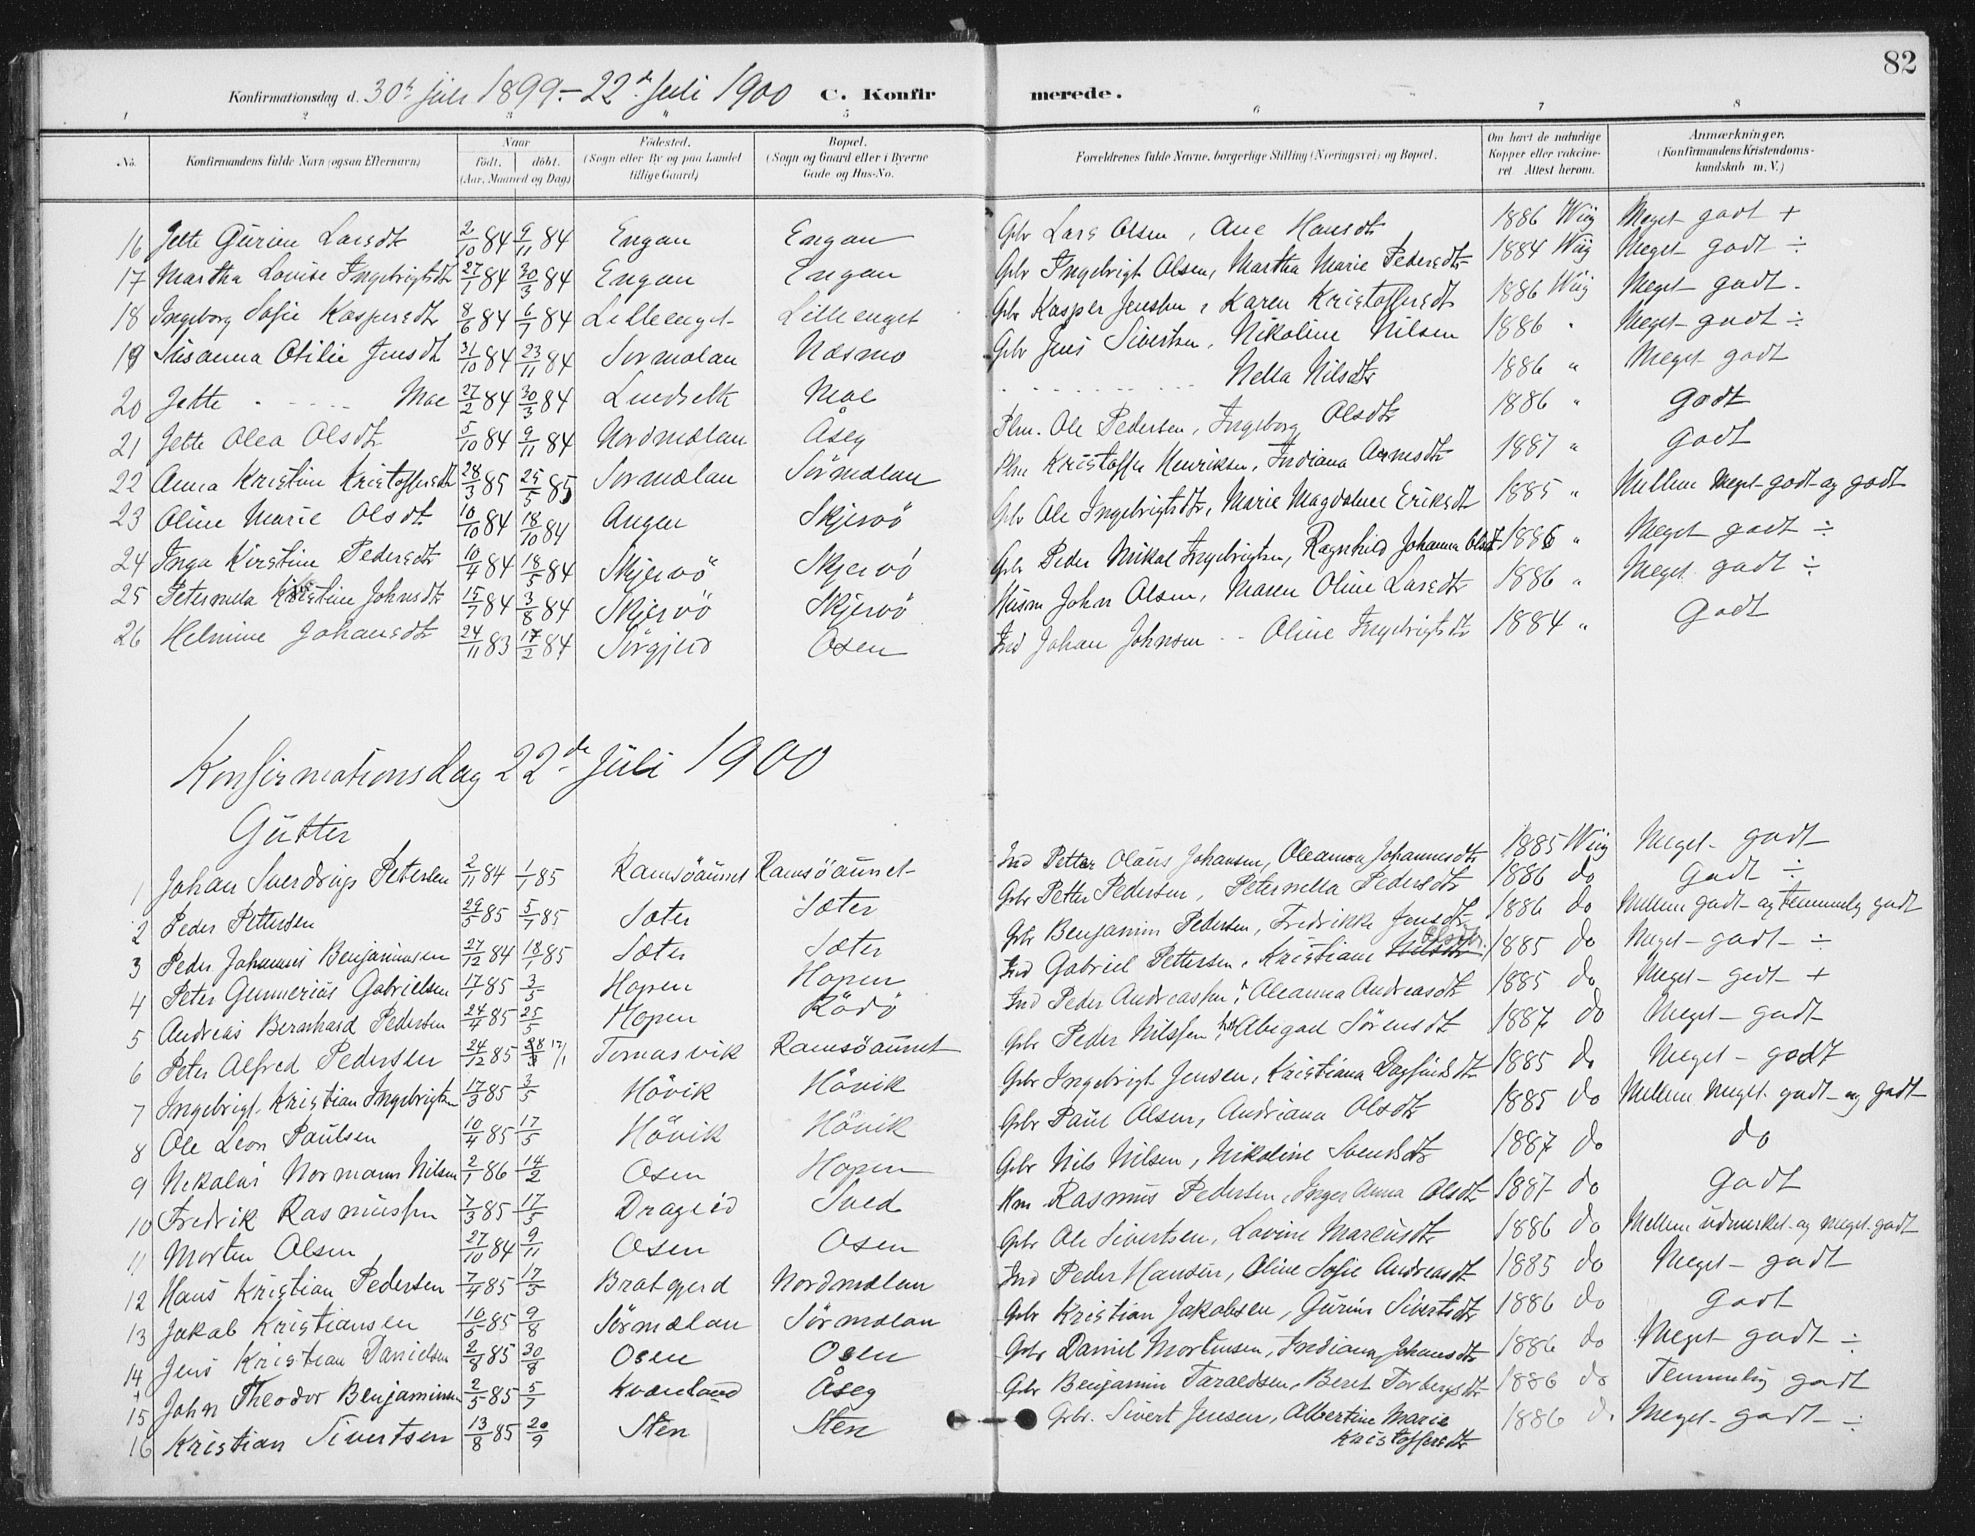 82
Konfirmationsdag d. 30te Juli 1899 - 22de Juli 1900 C. Konfirmerede.
1 2 3 4 5 6 7 8
No. Konfirmandens fulde Navn (ogsaa Efternavn) Naar født. døbt. (Aar, Maaned og Dag) Fødested. (Sogn eller By og paa Landet tillige Gaard) Bopæl. (Sogn og Gaard eller i Byerne Gade og Hus-No. Forældrenes fulde Navne, borgerlige Stilling (Næringsvei) og Bopæl. Om havt de naturlige Kopper eller vakcineret. Attest herom. Anmærkninger. (Konfirmandens Kristendomskundskab m. V.)
16 Jette Gurine Larsdtr 2/10 84 9/11 84 Engan Engan Gbr Lars Olsen, Ane Hansdtr 1886 Wiig Meget godt +
17 Martha Lovise Ingebrigtsdtr 27/1 84 30/3 84 Engan Engan Gbr Ingebrigt Olsen, Martha Marie Pedersdtr 1884 Wiig Meget godt ÷
18 Ingeborg Sofie Kaspersdtr 8/6 84 6/7 84 Lilleenget Lilleenget Gbr Kasper Jensen, Karen Kristoffersdtr 1886 Wiig Meget godt.
19 Susanna Otilie Jensdtr 31/10 84 23/11 84 Sørmælan Næsmo Gbr Jens Sivertsen, Nikoline Nilsen 1886 " Meget godt ÷
20 Jette - - - - Moe 27/2 84 30/3 84 Moe - - - - Nella Nilsdtr 1886 " Meget godt
21 Jette Olea Olsdtr 5/10 84 9/11 84 Nordmælan Åseg Plm. Ole Pedersen, Ingeborg Olsdtr 1886 " Godt
22 Anna Kristine Kristoffersdtr 28/3 85 25/5 85 Sørmælan Sørmælan Plm Kristoffer Henriksen, Indiana Arnesdtr 1887 " Godt
23 Oline Marie Olsdtr 10/10 84 18/10 84 Angen Skjervö Gbr Ole Ingebrigtsdtr, Marie Magdalene Eriksdtr 1885 " Mellem Meget godt og godt
24 Inga Kirstine Pedersdtr 10/4 84 18/5 84 Skjervö Skjervö Gbr Peder Mikal Ingebrigtsen, Ragnhild Johanna Olsdt 1886 " Meget godt ÷
25 Peternella Kristine Johnsdtr 15/7 84 3/8 84 Skjervö Skjervö Husm John Olsen, Maren Oline Larsdtr 1886 " Meget godt ÷
26 Helmine Johansdtr 24/11 83 17/2 84 Sørgjerd Osen Ind Johan Johnsen - - Oline Ingebrigtsdtr 1884 " Godt
Konfirmationsdag 22de Juli 1900
Gutter
1 Johan Sverdrup Petersen 2/11 84 1/1 85 Ramsöaunet Ramsöaunet Ind Petter Olaus Johansen, Oleanna Johannesdtr 1885 Wiig Meget godt
2 Peder Pettersen 29/5 85 5/7 85 Sæter Sæter Gbr Petter Pedersen, Peternella Pedersdtr 1886 do Godt ÷
3 Peder Johannes Benjaminsen 27/12 84 18/1 85 Sæter Sæter Gbr Benjamin Pedersen, Fredrikke Jensdtr 1886 do Mellem godt og temmelig godt
4 Peter Gunnerius Gabrielsen 17/1 85 3/5 Hopen Hopen Ind Gabriel Pettersen, Kristiane Nilsdtr Olsdtr. 1885 do Meget godt ÷
5 Andreas Bernhard Pedersen 24/4 85 25/5 Hopen Rödö Ind Peder Andreassen, Oleanna Andreasdtr 1885 do Meget godt +
6 Peter Alfred Pedersen 24/12 85 17/1 Tomasvik Ramsöaunet Gbr Peder Nilssen, Abigael Sörensdtr 1887 do Meget godt
7 Ingebrigt Kristian Ingebrigtsen 17/3 85 3/5 Hövik Hövik Gbr Ingebrigt Jensen, Kristiana Dagfinsdtr 1885 do Meget godt
8 Ole Leon Paulsen 10/4 85 17/5 Hövik Hövik Gbr Paul Olsen, Andriana Olsdtr 1885 do Mellem Meget godt og godt
9 Nikolai Normann Nilsen 2/1 86 14/2 Osen Hopen Gbr Nils Nilsen, Nikoline Svensdtr 1887 do do
10 Fredrik Rasmussen 7/3 85 17/5 Drageid Sved Hm Rasmus Pedersen, Inger Anna Olsdtr 1887 do Godt
11 Morten Olsen 27/10 84 9/11 Osen Osen Gbr Ole Sivertsen, Lovine Marcusdtr 1886 do Mellem udmerket og meget godt
12 Hans Kristian Pedersen 7/4 85 17/5 Bratgjerd Nordmælan Ind Peder Hansen, Oline Sofie Andreasdtr 1885 do Meget godt
13 Jakob Kristiansen 10/5 85 9/8 Sörmælan Sörmælan Gbr Kristian Jakobsen, Gurine Sivertsdtr 1886 do Godt
14 Jens Kristian Danielsen 2/8 85 30/8 Osen Osen Gbr Daniel Mortensen, Indiana Johansdtr 1886 do Meget godt ÷
15 John Theodor Benjaminsen 2/5 85 5/7 Kværnland Åseg Gbr Benjamin Taraldsen, Beret Torbergsdtr 1886 do Temmelig godt
16 Kristian Sivertsen 13/8 85 20/9 Sten Sten Gbr. Sivert Jensen, Albertine Marie 1886 do Meget godt ÷
Kristoffersdtr